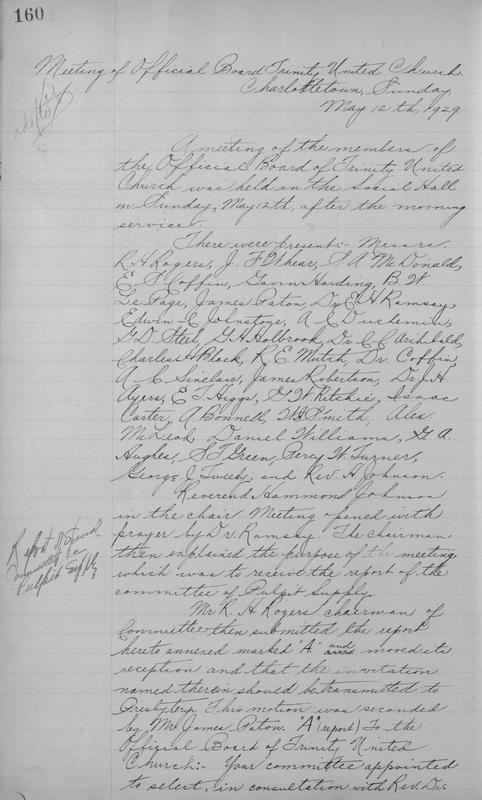 160
Meeting of Official Board Trinity United Church.
Charlottetown, Sunday,
May 12th, 1929
A meeting of the members of
the Official Board of Trinity United
Church was held in the Social Hall
on Sunday, May 12th, after the morning
service.
There were present:- Messrs.
R. H. Rogers, J. F. Whear, S. A. McDonald,
E. S. Coffin, Gavin Harding, B. W.
LePage, James Paton, Dr E. H. Ramsay,
Edwin C Johnstone, A. E. Duchemin,
G. D. Steel, G. H. Holbrook, Dr. C. C. Archibald,
Charles H Black, R. E. Mutch, Dr. Coffin,
A. C. Sinclair, James Robertson, Dr. J. H.
Ayers, E. T. Higgs, G. W. Ritchie, Isaac
Carter, A Bonnell, W. H. Smith, Alex.
McLeod, Daniel Williams, G. A.
Hughes, S. T. Green, Percy W. Turner,
George J. Tweedy, and Rev. H. Johnson.
Reverend Hammond Johnson
in the chair. Meeting opened with
prayer by Dr. Ramsay. The chairman
then explained the purpose of the meeting
which was to receive the report of the
committee of Pulpit Supply.
Report of
Committee
Pulpit Supply
Mr. R. H. Rogers chairman of
Committee then submitted the report
hereto annexed marked "A" and moved its
reception and that the invitation
named therein should be transmitted to
Presbytery. This motion was seconded
by Mr. James Paton. "A" (report) To the
Official Board of Trinity United
Church:- Your committee appointed
to select, in consultation with Rev. Dr.